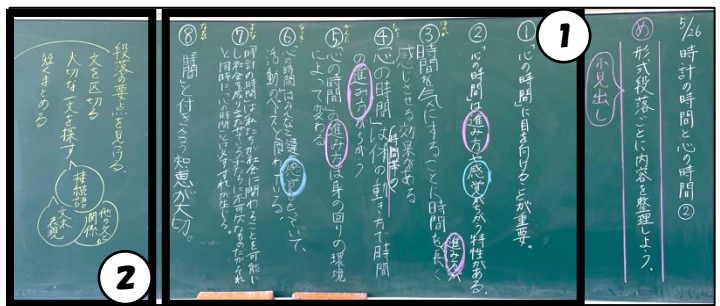 5/26 時計の時間と心の時間②
め 形式段落ごとに内容を整理しよう。
小見出し
1
①「心の時間」に目を向けることが重要。
②「心の時間」は進み方や感覚がちがう特性がある。
③時間を気にすることに時間を長く
感じさせる効果がある
進み方
④心の時間は体の動き方や時間
時間帯で
の進み方がちがう
⑤心の時間の進み方は身の回りの環境
によって変わる
⑥心の時間は人人と違う感覚をもっていて、
活動のペースと関わっている。
⑦時計の時間は私たちが社会に関わることを可能に
し社会を成り立たせるうえで不可欠なものだがそれ
と同時に心の時間には必ずずれが生じる。
⑧時間」と付き合う知恵が大切。
2
段落の要点を見つける
文を区切る
大切な一文を探す
短くまとめる
接続語
他の文との関係
文末表現